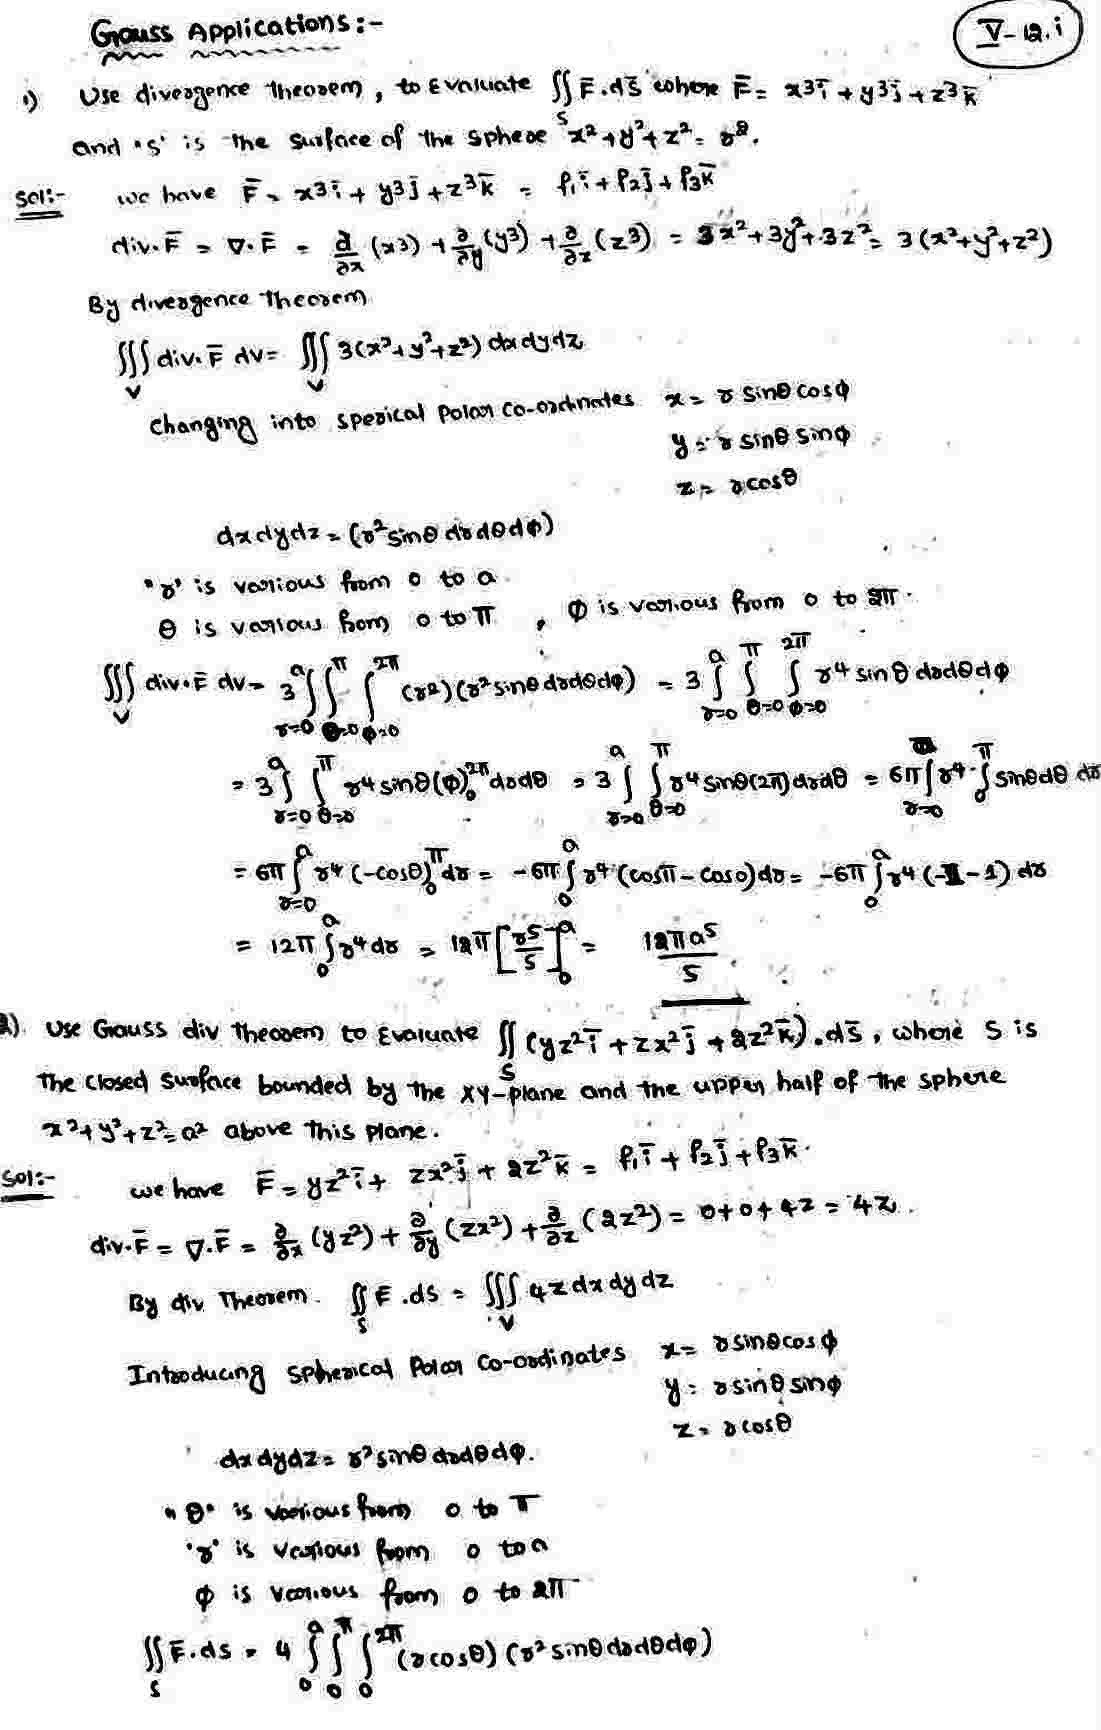 Gauss Applications:-
V-12.i
1) Use divergence theorem, to Evaluate ∬_S F̄.ds̄ where F̄ = x³ī + y³j̄ + z³k̄
and "S" is the surface of the sphere x²+y²+z² = r².
Sol:- we have F̄ = x³ī + y³j̄ + z³k̄ = f₁ī + f₂j̄ + f₃k̄
div.F̄ = ∇.F̄ = ∂/∂x (x³) + ∂/∂y (y³) + ∂/∂z (z³) = 3x²+3y²+3z² = 3(x²+y²+z²)
By divergence theorem
∭_V div.F̄ dv = ∭_V 3(x²+y²+z²) dxdydz
Changing into sperical polar co-ordinates x = r sinθ cosφ
y = r sinθ sinφ
z = r cosθ
dxdydz = (r² sinθ drdθdφ)
"r" is various from 0 to a
θ is various from 0 to π , φ is various from 0 to 2π.
∭_V div.F̄ dv = 3 ∫_{r=0}^{a} ∫_{θ=0}^{π} ∫_{φ=0}^{2π} (r²)(r² sinθ drdθdφ) = 3 ∫_{r=0}^{a} ∫_{θ=0}^{π} ∫_{φ=0}^{2π} r⁴ sinθ drdθdφ
= 3 ∫_{r=0}^{a} ∫_{θ=0}^{π} r⁴ sinθ (φ)_0^{2π} drdθ = 3 ∫_{r=0}^{a} ∫_{θ=0}^{π} r⁴ sinθ (2π) drdθ = 6π ∫_{r=0}^{a} r⁴ ∫_0^{π} sinθ dθ dr
= 6π ∫_{r=0}^{a} r⁴ (-cosθ)_0^{π} dr = -6π ∫_0^{a} r⁴ (cosπ - cos0) dr = -6π ∫_0^{a} r⁴ (-1-1) dr
= 12π ∫_0^{a} r⁴ dr = 12π [r⁵/5]_0^{a} = 12πa⁵/5
2) Use Gauss div theorem to Evaluate ∬_S (yz²ī + zx²j̄ + 2z²k̄).ds̄, where S is
the closed surface bounded by the xy-plane and the upper half of the sphere
x²+y²+z²=a² above this plane.
Sol:- we have F̄ = yz²ī + zx²j̄ + 2z²k̄ = f₁ī + f₂j̄ + f₃k̄.
div.F̄ = ∇.F̄ = ∂/∂x (yz²) + ∂/∂y (zx²) + ∂/∂z (2z²) = 0+0+4z = 4z.
By div Theorem. ∬_S F̄.ds = ∭_V 4z dxdydz
Introducing spherical Polar co-ordinates x = r sinθ cosφ
y = r sinθ sinφ
z = r cosθ
dxdydz = r² sinθ drdθdφ.
"θ" is various from 0 to π
'r' is various from 0 to a
φ is various from 0 to 2π
∬_S F̄.ds = 4 ∫_0^{a} ∫_0^{π} ∫_0^{2π} (r cosθ) (r² sinθ drdθdφ)